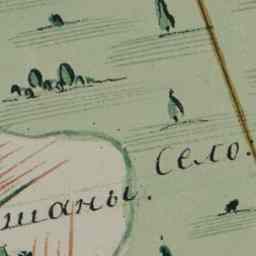 село.
шаны.